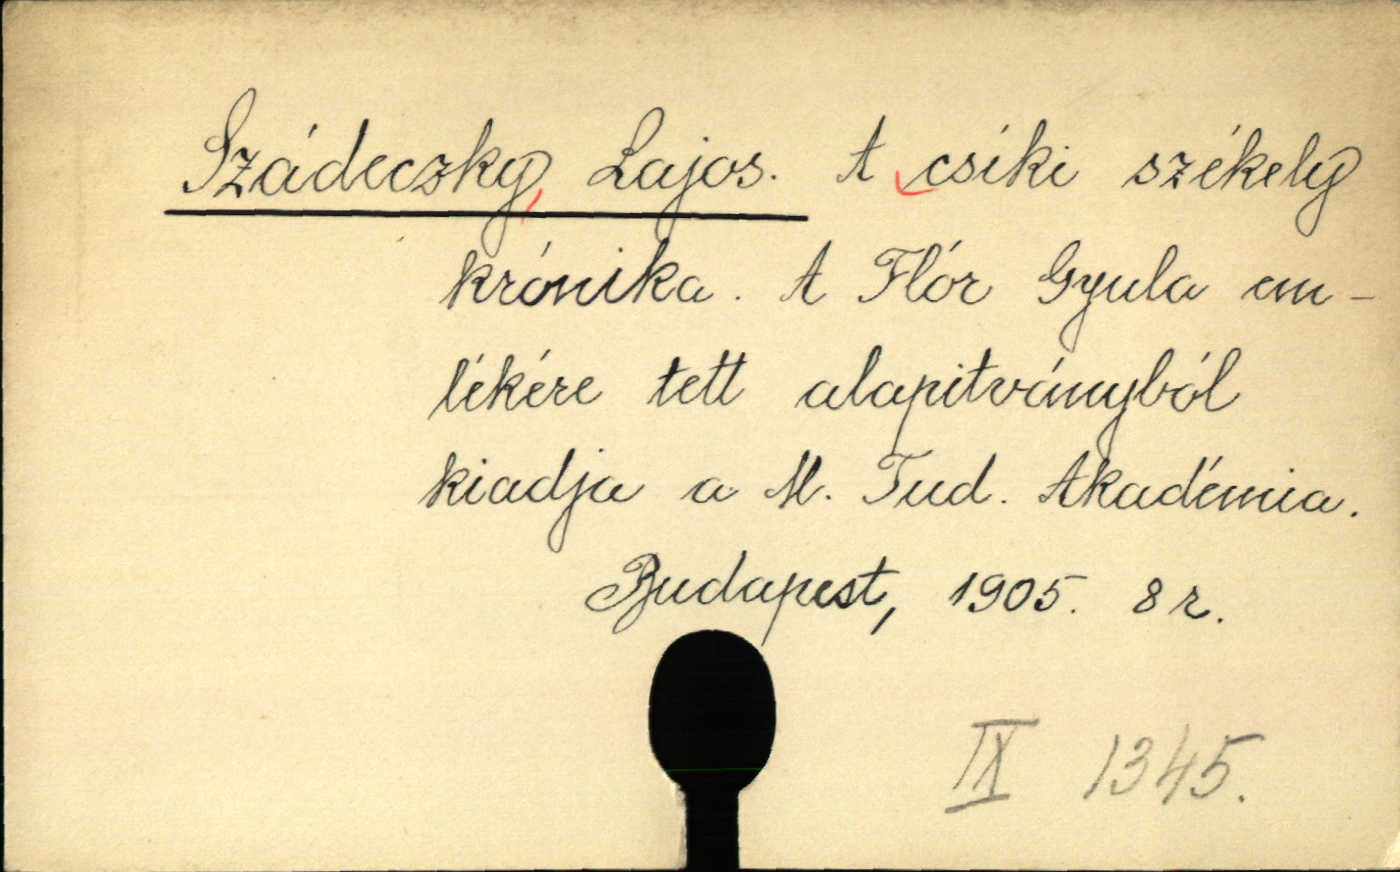 Szádeczky, Lajos. A csíki székely
krónika. A Flór Gyula em-
lékére tett alapitványból
kiadja a M. Tud. Akadémia.
Budapest, 1905. 8 r.
IX 1345.